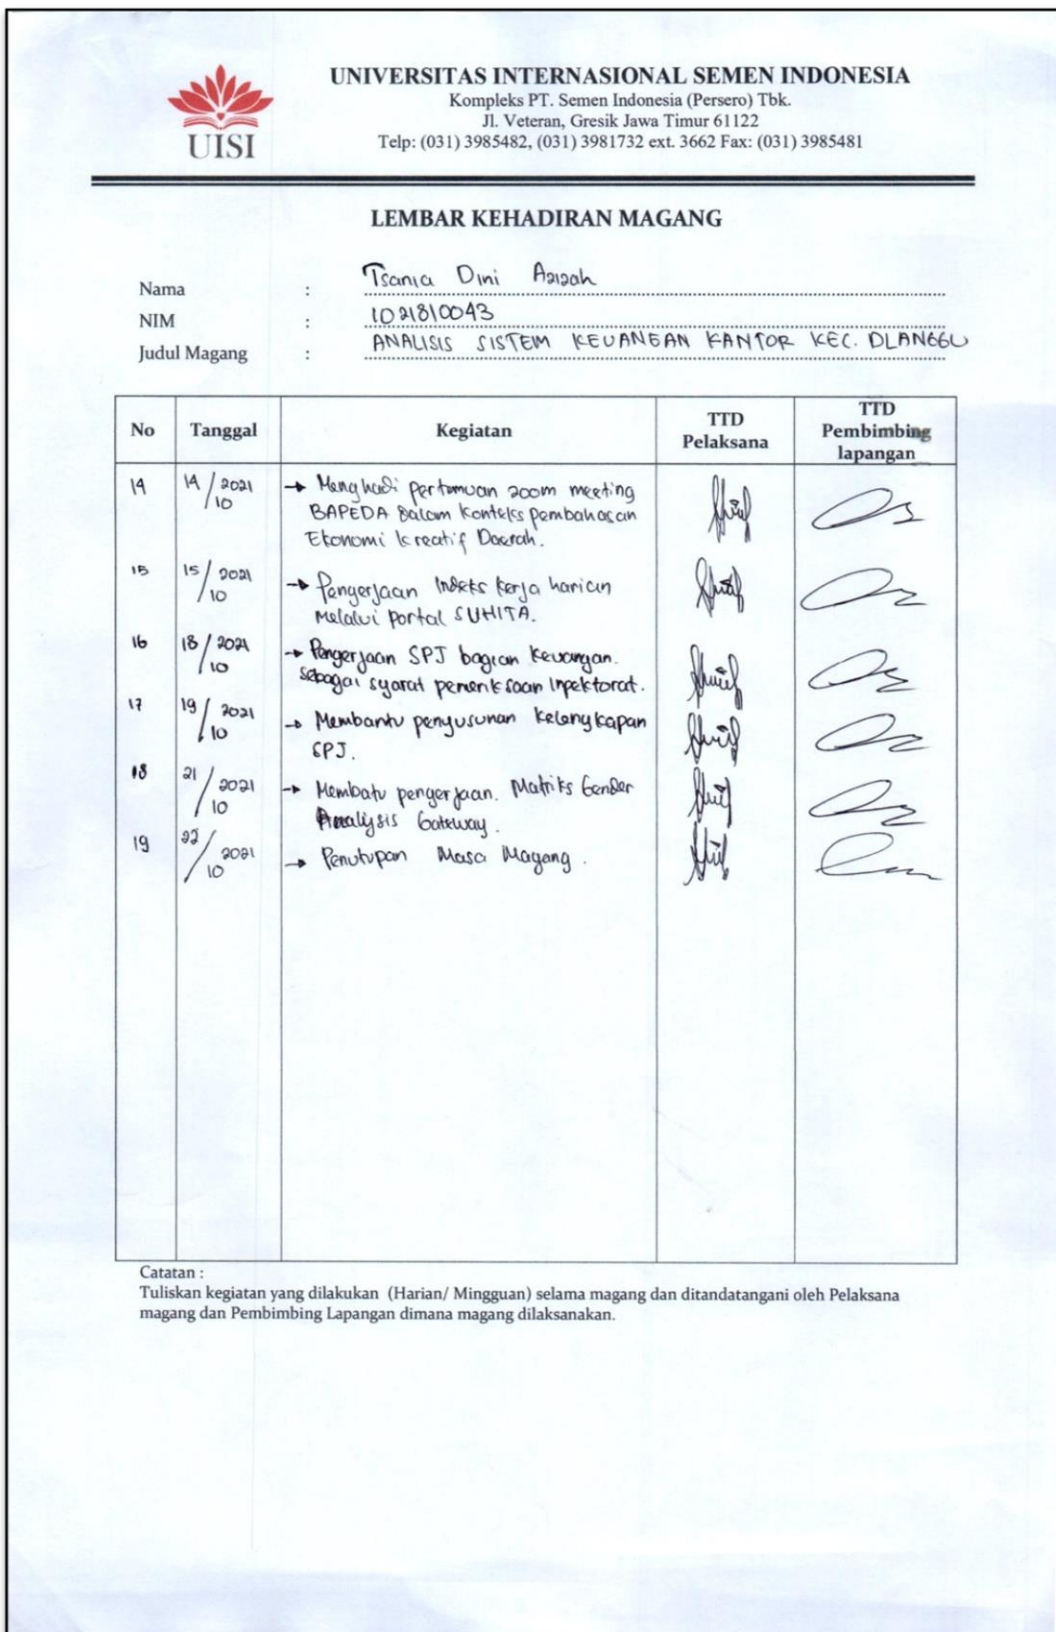 UISI
UNIVERSITAS INTERNASIONAL SEMEN INDONESIA
Kompleks PT. Semen Indonesia (Persero) Tbk.
Jl. Veteran, Gresik Jawa Timur 61122
Telp: (031) 3985482, (031) 3981732 ext. 3662 Fax: (031) 3985481
LEMBAR KEHADIRAN MAGANG
Nama : Tsania Dini Azizah
NIM : 1021810043
Judul Magang : ANALISIS SISTEM KEUANGAN KANTOR KEC. DLANGGU
No Tanggal Kegiatan TTD Pelaksana TTD Pembimbing lapangan
14 14/10 2021 → Menghadi pertemuan zoom meeting
BAPEDA dalam Konteks pembahasan
Ekonomi kreatif Daerah.
15 15/10 2021 → Pengerjaan Indeks kerja harian
melalui portal SUMITA.
16 18/10 2021 → Pengerjaan SPJ bagian keuangan.
sebagai syarat pemeriksaan Inpektorat.
17 19/10 2021 → Membantu penyusunan kelengkapan
SPJ.
18 21/10 2021 → Membatu pengerjaan. Matriks Gender
Analysis Gateway.
19 22/10 2021 → Penutupan Masa Magang.
Catatan :
Tuliskan kegiatan yang dilakukan (Harian/ Mingguan) selama magang dan ditandatangani oleh Pelaksana
magang dan Pembimbing Lapangan dimana magang dilaksanakan.